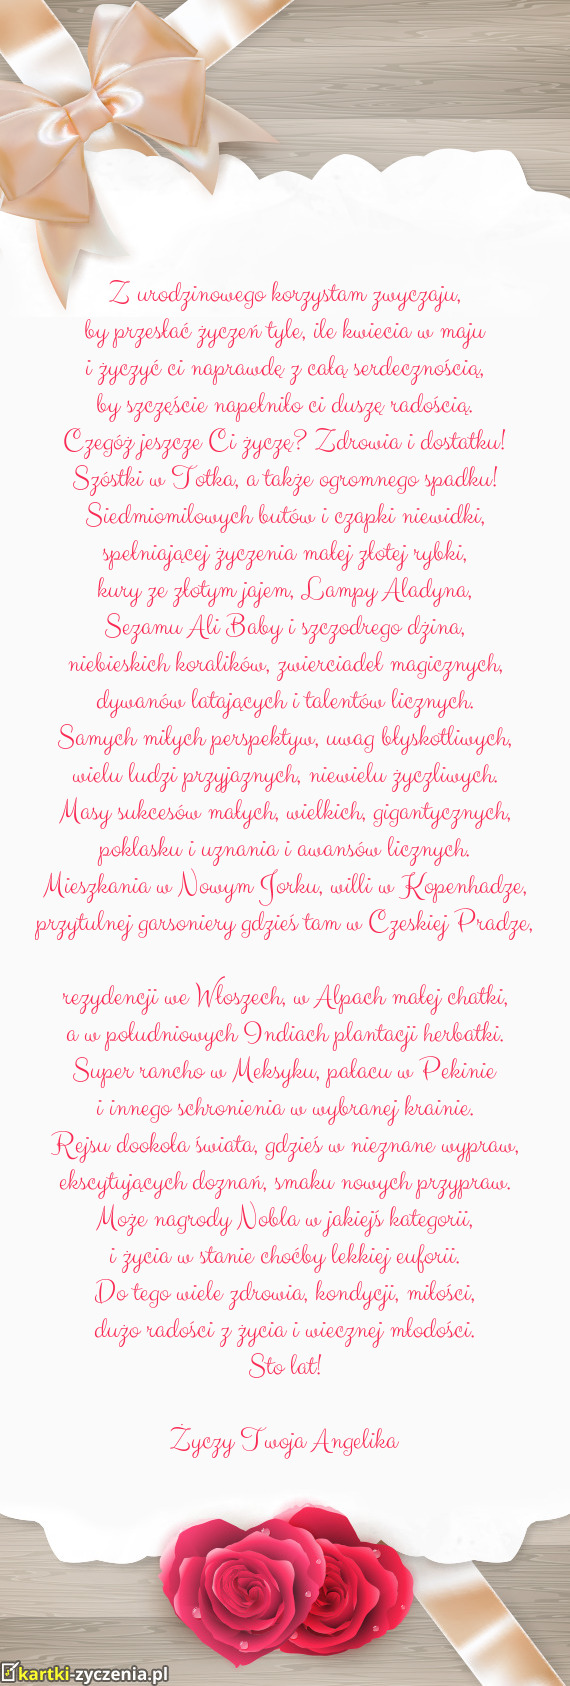 Z urodzinowego korzystam zwyczaju,
by przesłać życzeń tyle, ile kwiecia w maju
i życzyć ci naprawdę z całą serdecznością,
by szczęście napełniło ci duszę radością.
Czegóż jeszcze Ci życzę? Zdrowia i dostatku!
Szóstki w Totka, a także ogromnego spadku!
Siedmiomilowych butów i czapki niewidki,
spełniającej życzenia małej złotej rybki,
kury ze złotym jajem, Lampy Aladyna,
Sezamu Ali Baby i szczodrego dżina,
niebieskich koralików, zwierciadeł magicznych,
dywanów latających i talentów licznych.
Samych miłych perspektyw, uwag błyskotliwych,
wielu ludzi przyjaznych, niewielu życzliwych.
Masy sukcesów małych, wielkich, gigantycznych,
poklasku i uznania i awansów licznych.
Mieszkania w Nowym Jorku, willi w Kopenhadze,
przytulnej garsoniery gdzieś tam w Czeskiej Pradze,
rezydencji we Włoszech, w Alpach małej chatki,
a w południowych Indiach plantacji herbatki.
Super rancho w Meksyku, pałacu w Pekinie
i innego schronienia w wybranej krainie.
Rejsu dookoła świata, gdzieś w nieznane wypraw,
ekscytujących doznań, smaku nowych przypraw.
Może nagrody Nobla w jakiejś kategorii,
i życia w stanie choćby lekkiej euforii.
Do tego wiele zdrowia, kondycji, miłości,
dużo radości z życia i wiecznej młodości.
Sto lat!
Życzy Twoja Angelika
kartki-zyczenia.pl